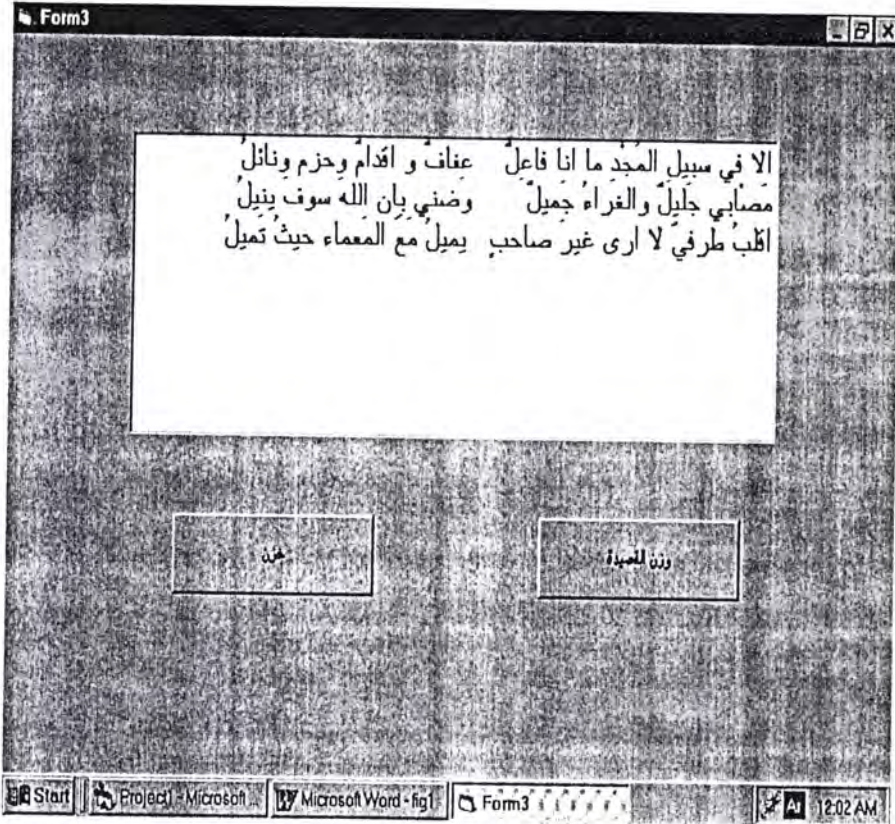 Form3
الا في سبيلِ المَجْدِ ما انا فاعلٌ عفافٌ و اقدامٌ وحزم ونائلُ
مَصابي جَليلٌ والغراءُ جَميلٌ وضني بِان اللهَ سوفَ ينيلُ
اقلبُ طرفيَّ لا ارى غيرَ صاحبٍ يميلُ معَ المَعماء حيثُ تَميلُ
خزن
وزن القصيدة
Start Project1 - Microsoft ... Microsoft Word - fig1 Form3 Ar 12:02 AM